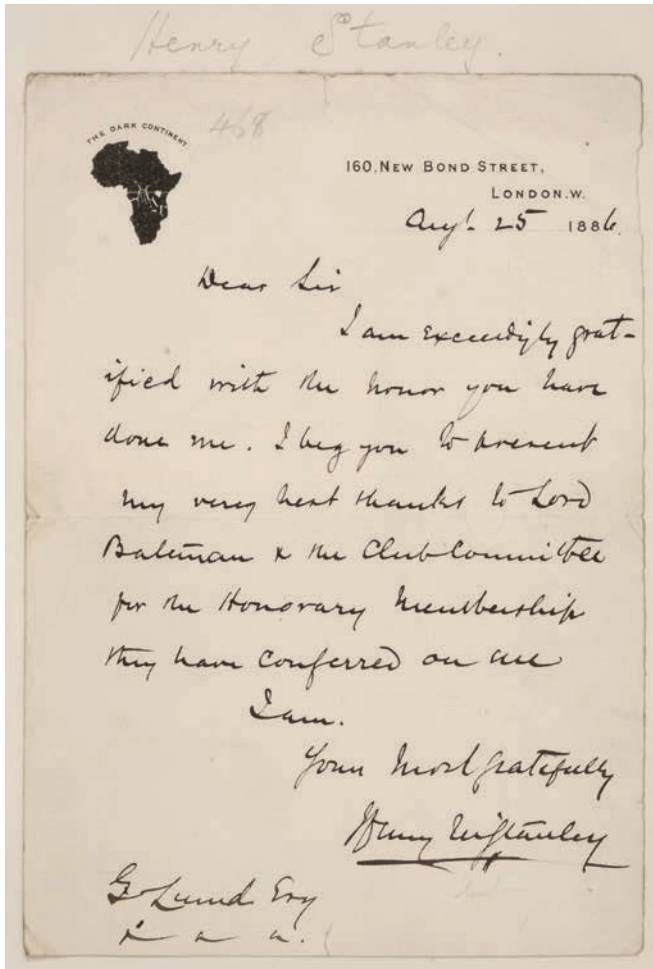 Henry Stanley.
468
THE DARK CONTINENT
160, NEW BOND STREET,
LONDON. W.
Augt. 25 1886.
Dear Sir
I am exceedigly grat-
ified with the honor you have
done me. I beg you to present
my very best thanks to Lord
Bateman & the Club Committee
for the Honorary Membership
they have conferred on me
I am.
Yours Most gratefully
Henry M Stanley
G Lund Esq